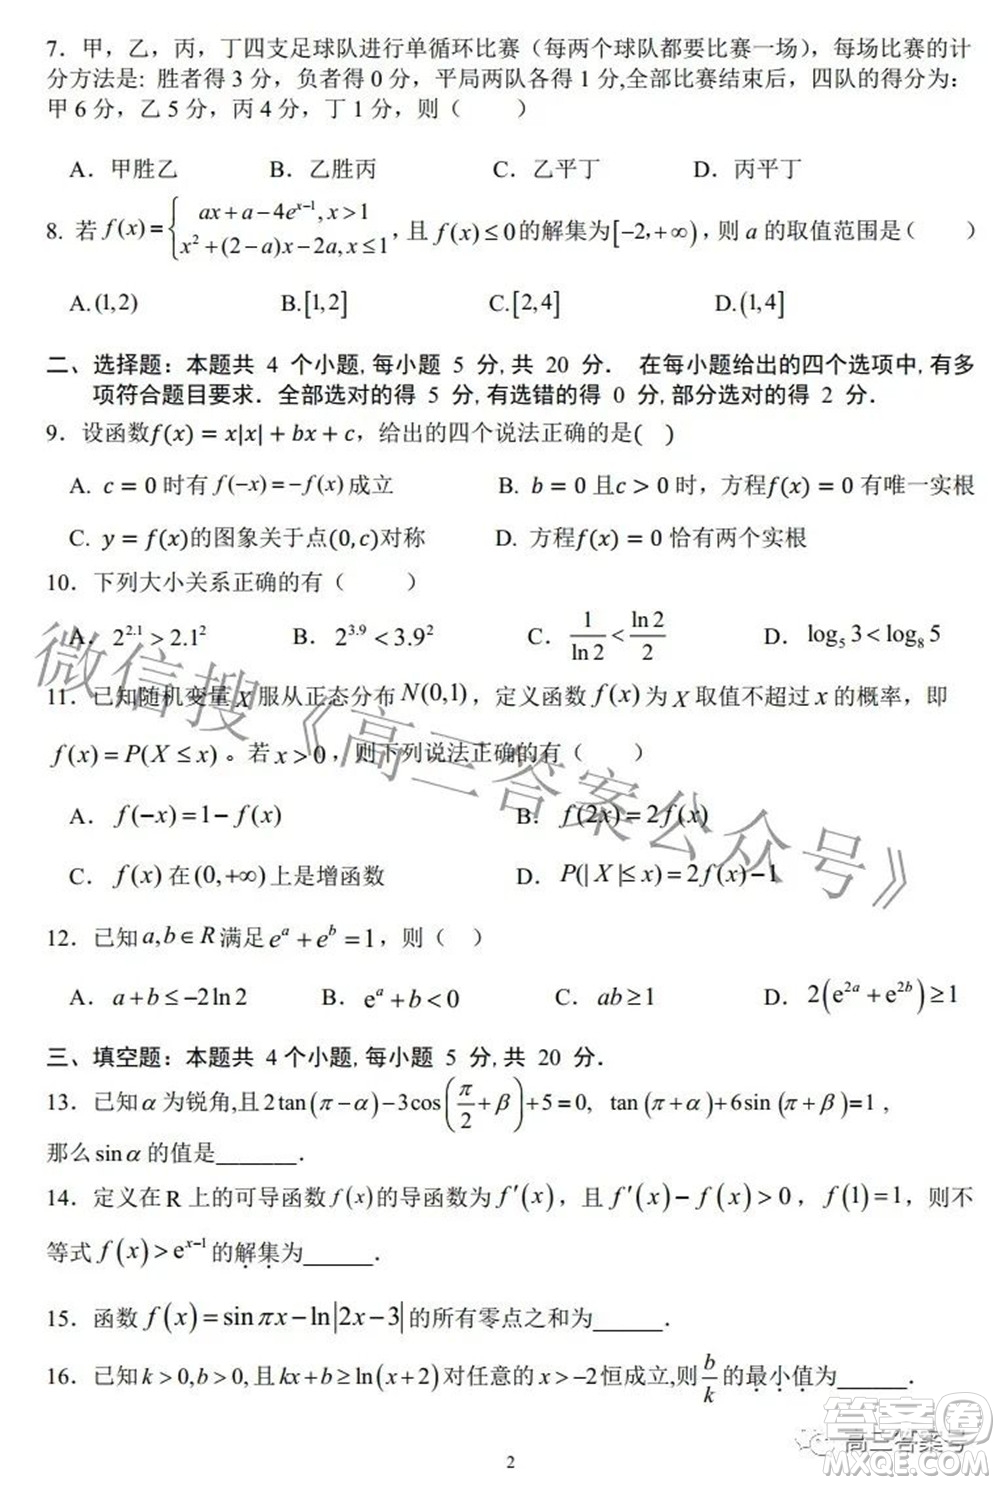 7．甲，乙，丙，丁四支足球队进行单循环比赛（每两个球队都要比赛一场），每场比赛的计
分方法是: 胜者得 3 分，负者得 0 分，平局两队各得 1 分,全部比赛结束后，四队的得分为：
甲 6 分，乙 5 分，丙 4 分，丁 1 分，则（　　）
A．甲胜乙　　B．乙胜丙　　C．乙平丁　　D．丙平丁
8. 若 f(x) = { ax + a − 4e^{x−1}, x > 1 ; x² + (2 − a)x − 2a, x ≤ 1 ，且 f(x) ≤ 0 的解集为 [−2, +∞)，则 a 的取值范围是（　　）
A.(1,2)　　B.[1,2]　　C.[2,4]　　D.(1,4]
二、选择题：本题共 4 个小题,每小题 5 分,共 20 分． 在每小题给出的四个选项中,有多
项符合题目要求．全部选对的得 5 分,有选错的得 0 分,部分选对的得 2 分．
9．设函数f(x) = x|x| + bx + c，给出的四个说法正确的是(　)
A. c = 0 时有 f(−x) = −f(x) 成立　　B. b = 0 且c > 0 时，方程f(x) = 0 有唯一实根
C. y = f(x)的图象关于点(0, c)对称　　D. 方程f(x) = 0 恰有两个实根
10．下列大小关系正确的有（　　）
A．2^{2.1} > 2.1²　　B．2^{3.9} < 3.9²　　C．1/ln 2 < ln 2/2　　D．log₅ 3 < log₈ 5
11．已知随机变量 X 服从正态分布 N(0,1)，定义函数 f(x) 为 X 取值不超过 x 的概率，即
f(x) = P(X ≤ x) 。若 x > 0，则下列说法正确的有（　　）
A．f(−x) = 1 − f(x)　　B．f(2x) = 2f(x)
C．f(x) 在 (0, +∞) 上是增函数　　D．P(|X| ≤ x) = 2f(x) − 1
12．已知 a, b ∈ R 满足 e^a + e^b = 1，则（　）
A．a + b ≤ −2ln 2　　B．e^a + b < 0　　C．ab ≥ 1　　D．2(e^{2a} + e^{2b}) ≥ 1
三、填空题：本题共 4 个小题,每小题 5 分,共 20 分．
13．已知 α 为锐角,且 2tan(π − α) − 3cos(π/2 + β) + 5 = 0, tan(π + α) + 6sin(π + β) = 1，
那么 sin α 的值是_______．
14．定义在 R 上的可导函数 f(x) 的导函数为 f′(x)，且 f′(x) − f(x) > 0，f(1) = 1，则不
等式 f(x) > e^{x−1} 的解集为______．
15．函数 f(x) = sin πx − ln|2x − 3| 的所有零点之和为______．
16．已知 k > 0, b > 0, 且 kx + b ≥ ln(x + 2) 对任意的 x > −2 恒成立,则 b/k 的最小值为______．
2
微信搜《高三答案公众号》
高三答案号
答案圈
MXQE.COM